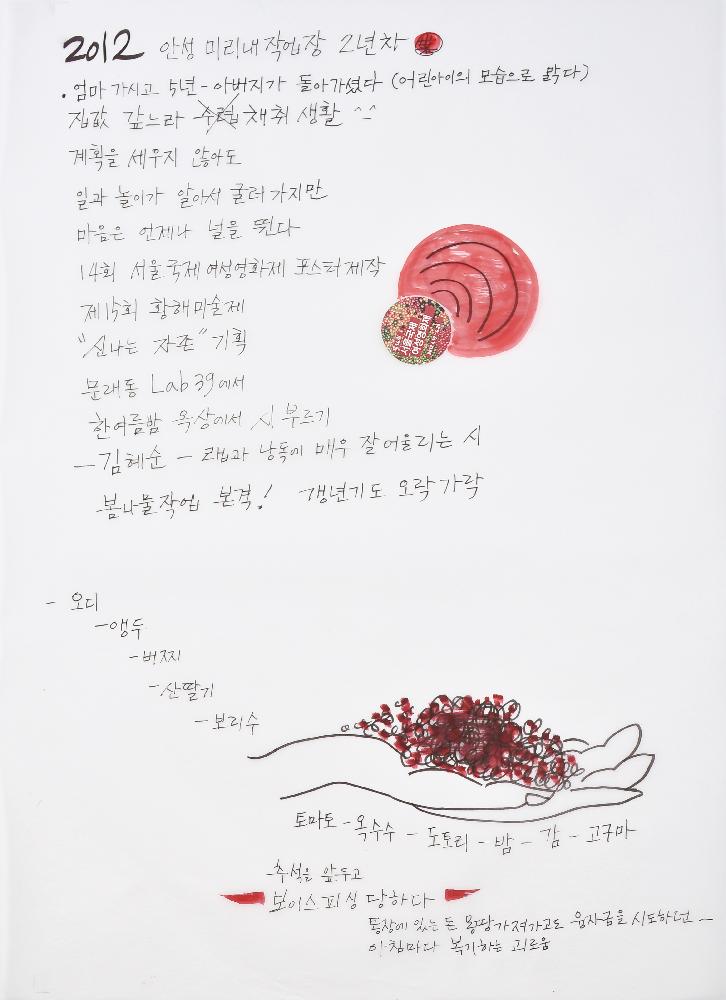 2012 안성 미리내 작업장 2년차
• 엄마 가시고 5년 - 아버지가 돌아가셨다 (어린아이의 모습으로 맑다)
집값 갚느라 수렵 채취 생활 ^^
계획을 세우지 않아도
일과 놀이가 알아서 굴러가지만
마음은 언제나 널을 뛴다
14회 서울국제여성영화제 포스터제작
제15회 황해미술제
"신나는 자존" 기획
서울국제
여성영화제
문래동 Lab 39에서
한여름밤 옥상에서 시 부르기
- 김혜순 - 랩과 낭독에 매우 잘어울리는 시
봄나물작업 본격! 갱년기도 오락가락
- 오디
- 앵두
- 버찌
- 산딸기
- 보리수
토마토 - 옥수수 - 도토리 - 밤 - 감 - 고구마
- 추석을 앞두고
보이스피싱 당하다
통장에 있는 돈 몽땅가져가고도 융자금을 시도하던 -
아침마다 복기하는 괴로움